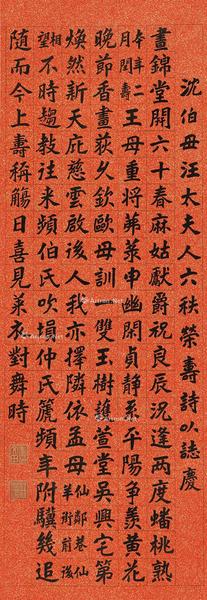 沈伯母汪太夫人六秩榮壽詩以誌慶
晝錦堂開六十春麻姑獻爵祝良辰況逢兩度蟠桃熟
本年壽月閏二王母重將茀祿申幽閑貞靜系千陽爭羨黃花
晚節香畫荻久欽歐母訓雙玉樹護萱堂吳興宅第
煥然新天庇慈雲啟後人我亦擇隣依孟母仙鄰巷仙羊街前後
相望不時趨教往來頻伯氏吹塤仲氏篪頻年附驥幾追
隨而今上壽稱觴日喜見萊衣對舞時
Auron.Net